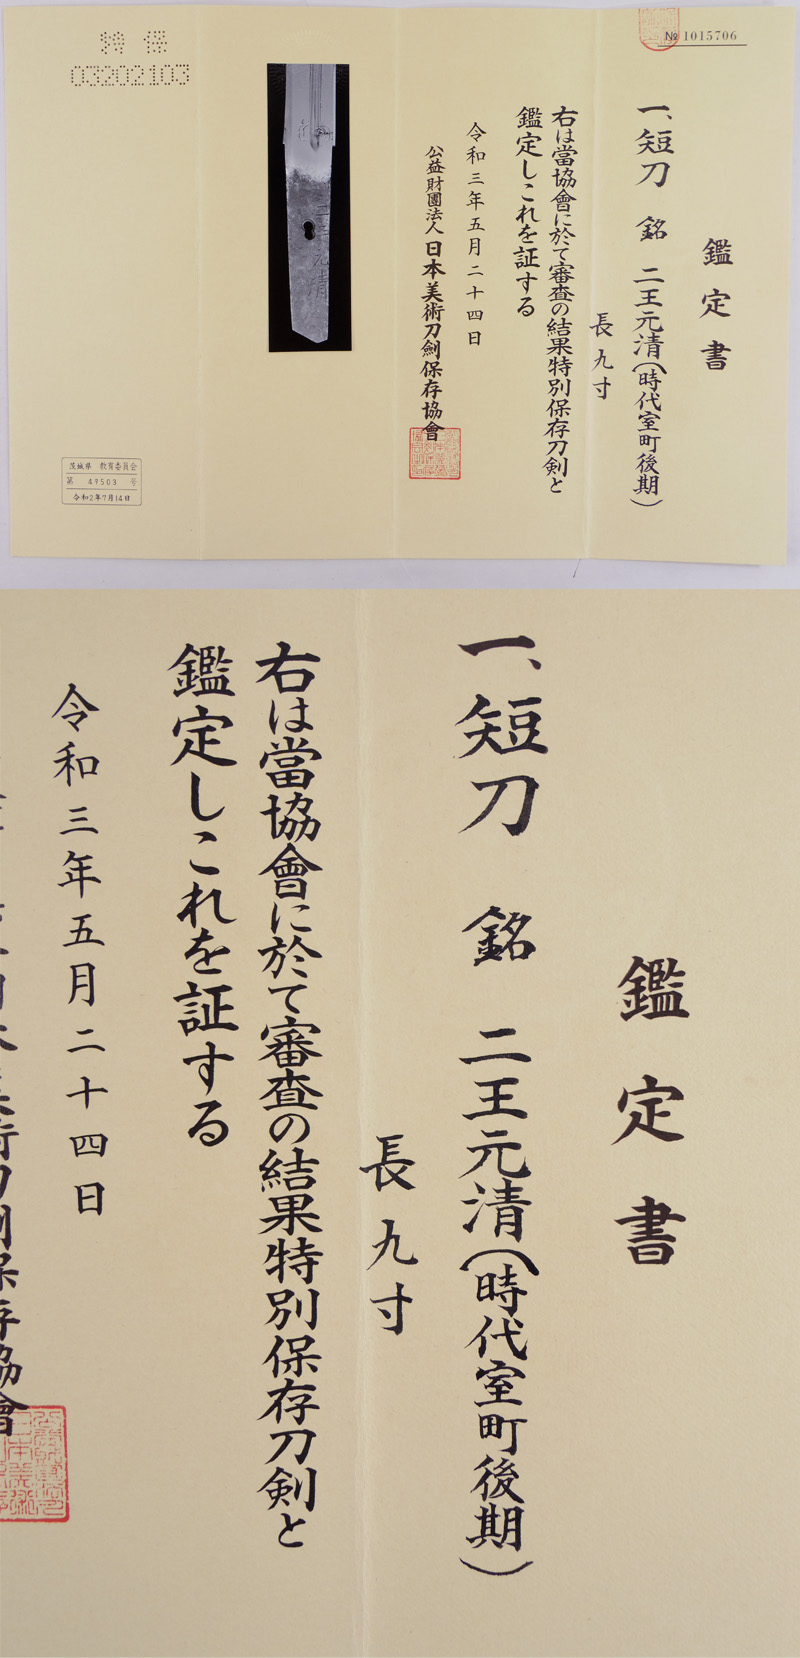 № 1015706
鑑定書
一、短刀 銘 二王元清(時代室町後期)
長九寸
右は當協會に於て審査の結果特別保存刀剣と
鑑定しこれを証する
令和三年五月二十四日
公益財團法人 日本美術刀劍保存協會
特保
03202103
茨城県 教育委員会
第 49503 号
令和2年7月14日
鑑定書
一、短刀 銘 二王元清(時代室町後期)
長九寸
右は當協會に於て審査の結果特別保存刀剣と
鑑定しこれを証する
令和三年五月二十四日